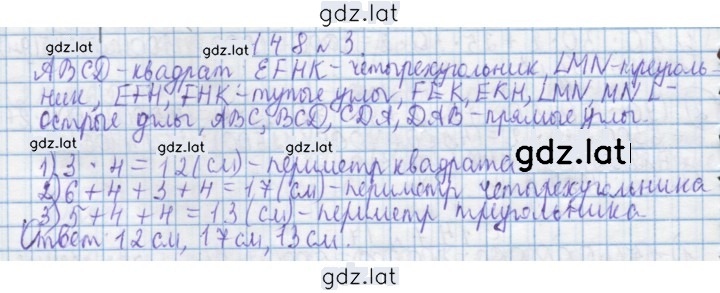 gdz.lat
gdz.lat gdz.lat
148 № 3.
ABCD-квадрат EFHK-четырехугольник, LMN-треуголь-
ник, EFH, FHK-тупые углы, FEK, EKH, LMN MNL-
острые углы, ABC, BCD, CDA, DAB-прямые углы.
gdz.lat
1) 3 · 4 = 12 (см) - периметр квадрата
2) 6 + 4 + 3 + 4 = 17 (см) - периметр четырехугольника
3) 5 + 4 + 4 = 13 (см) - периметр триугольника.
Ответ 12 см, 17 см, 13 см.
gdz.lat gdz.lat
gdz.lat